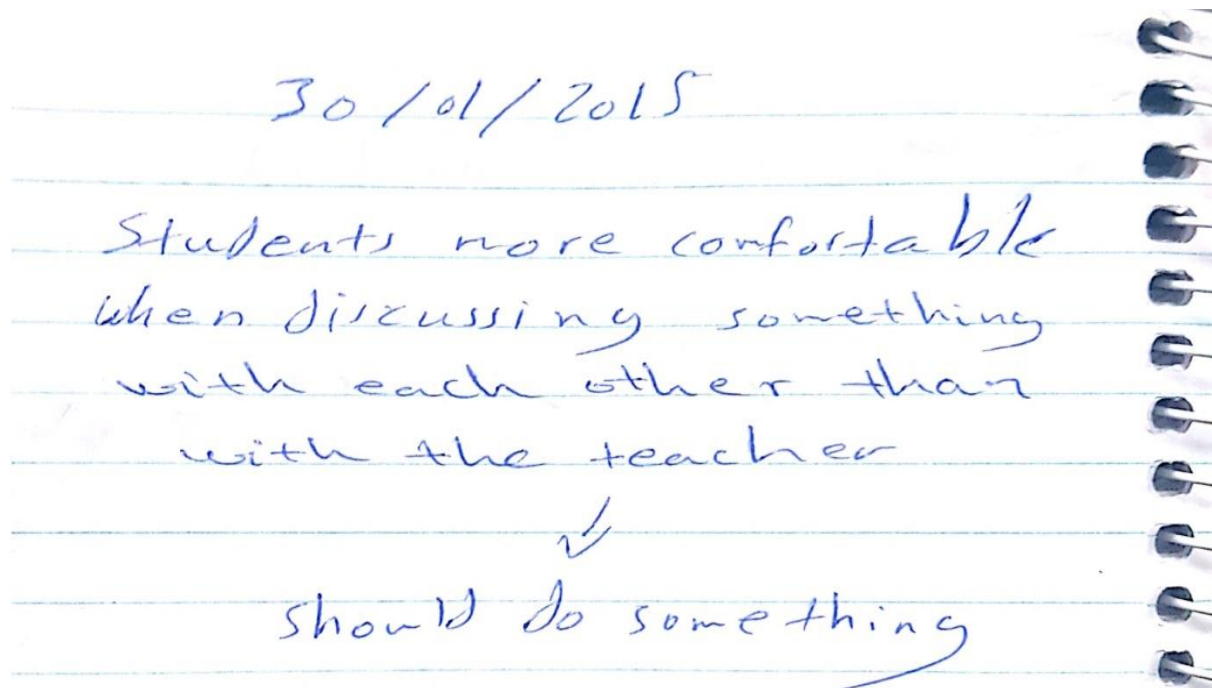 30/01/2015
Students more comfortable
when discussing something
with each other than
with the teacher
should do something